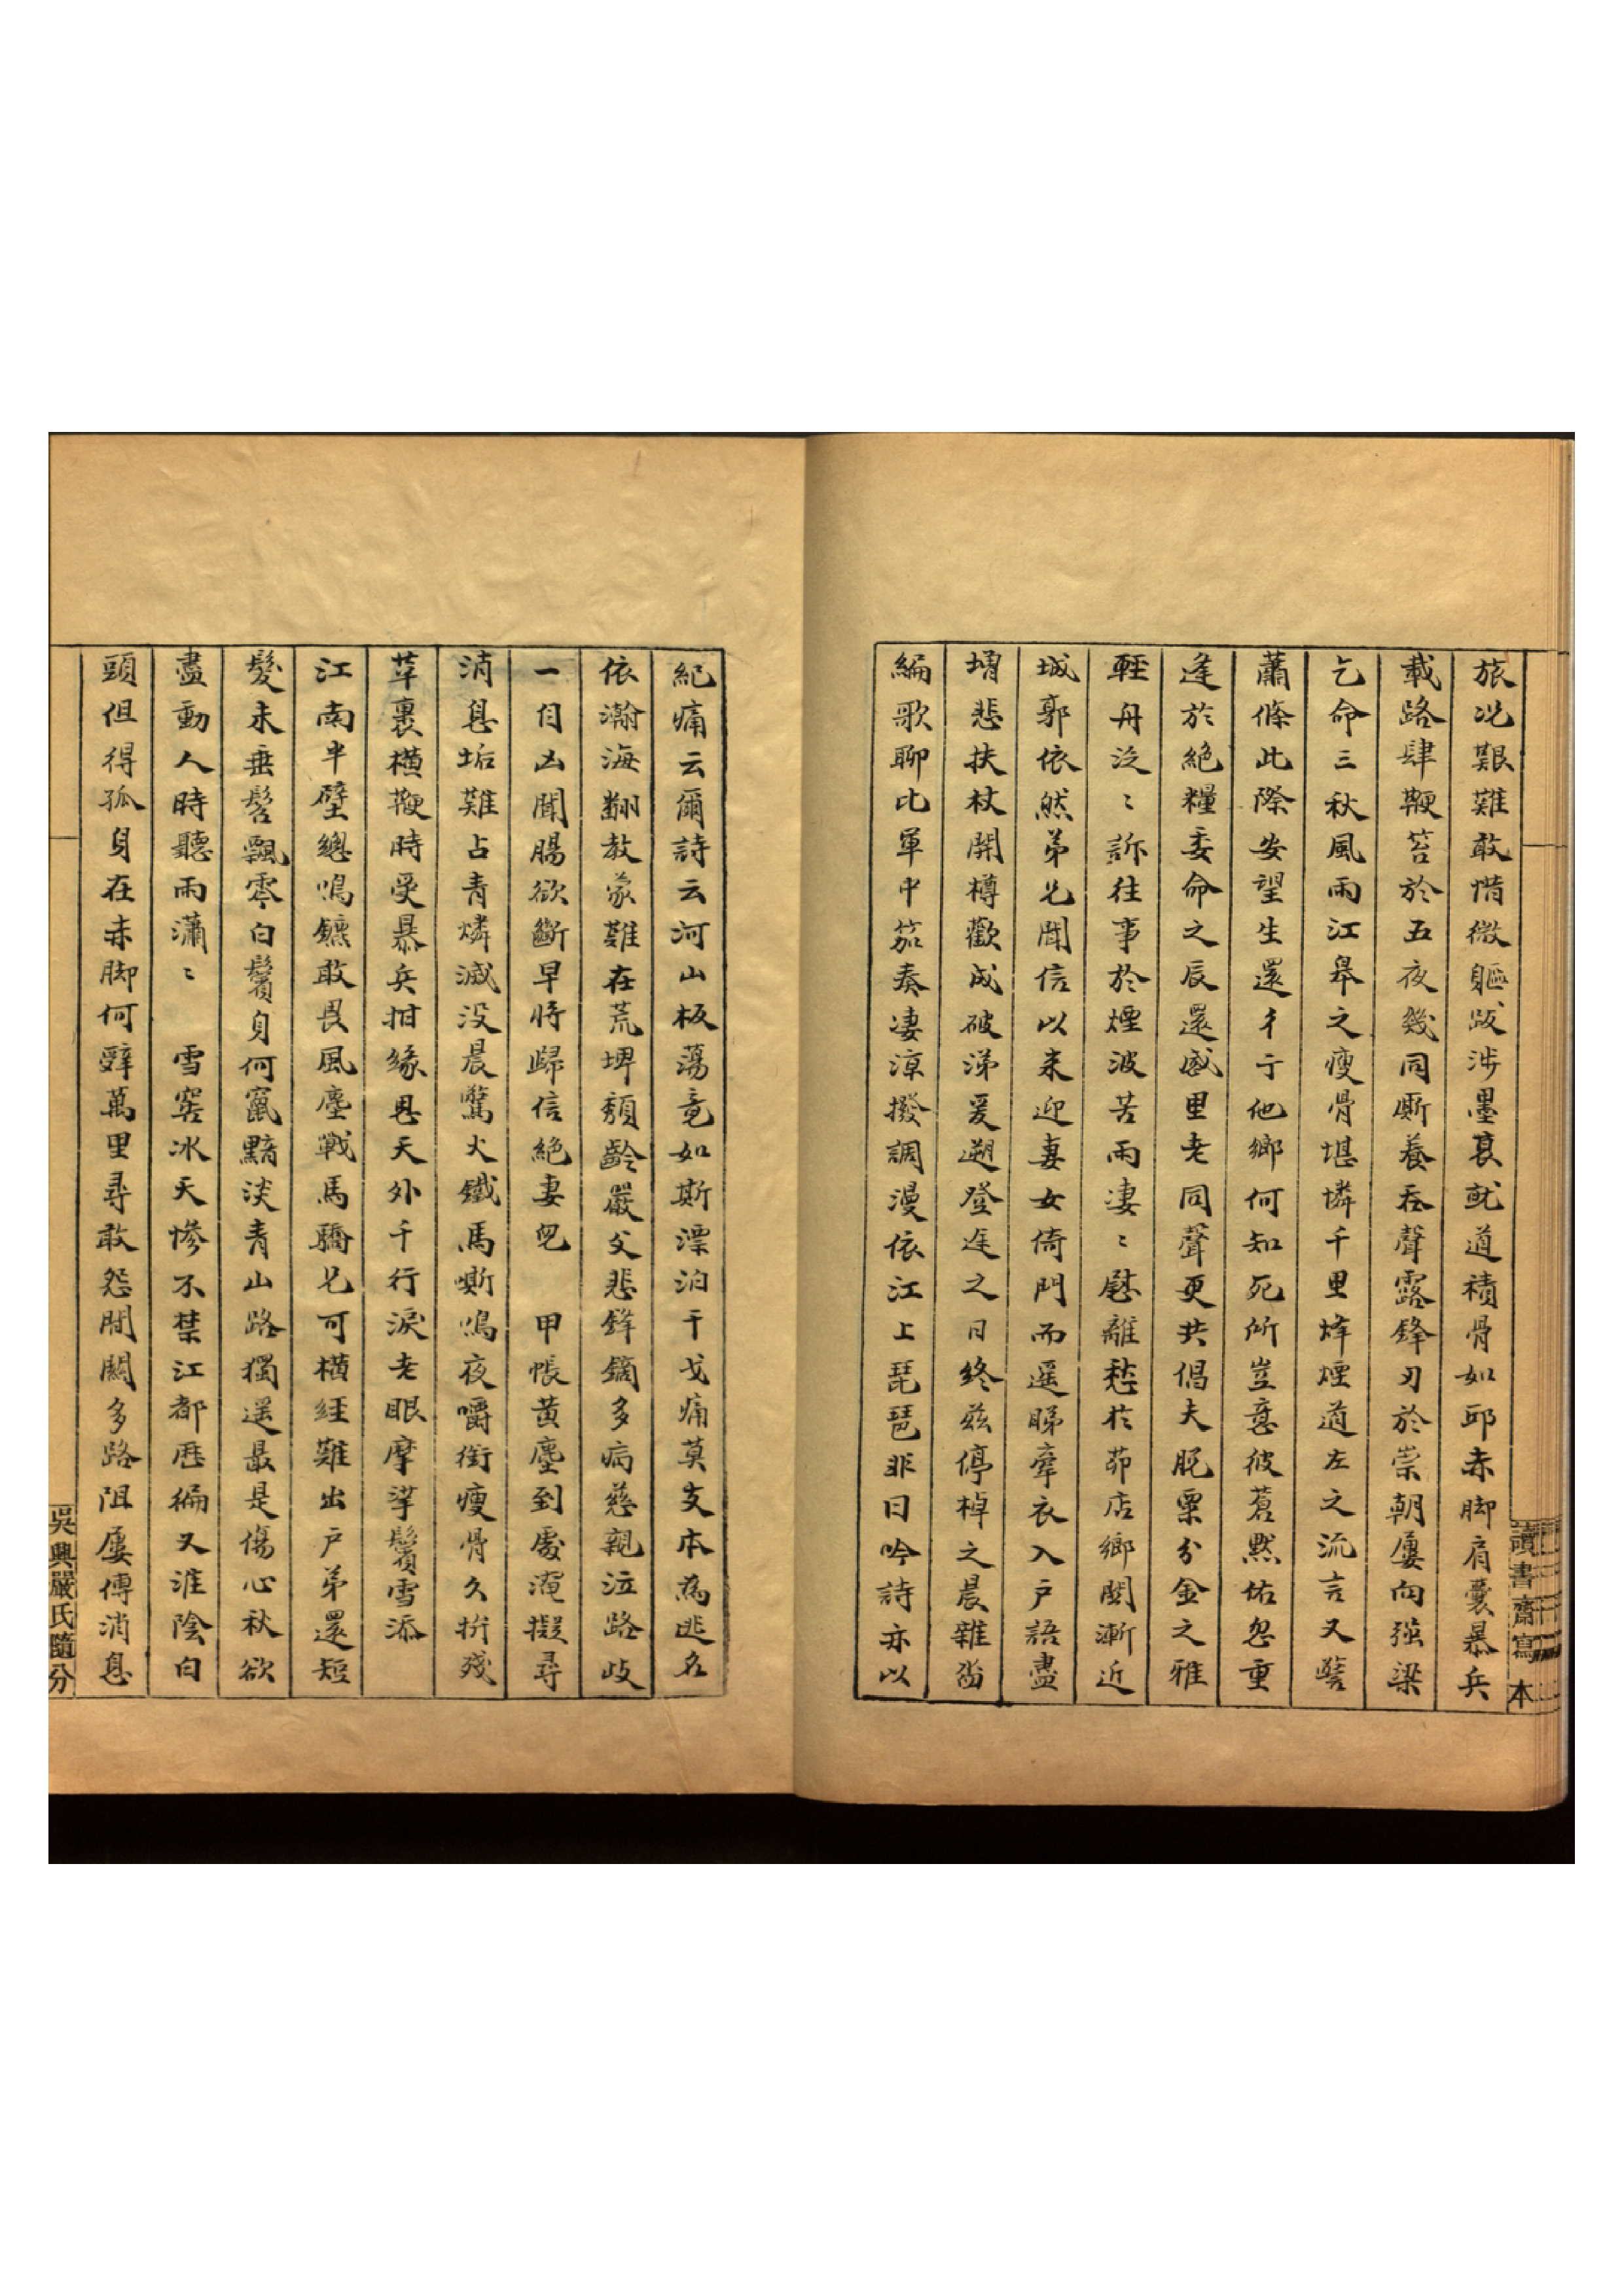 旅况艱難敢惜微軀跋涉墨裹就道積骨如邱赤脚肩囊暴兵
載路肆鞭笞於五夜幾同廝養吞聲露鋒刃於崇朝屢向强梁
乞命三秋風雨江皋之瘦骨堪憐千里烽煙道左之流言又
蕭條此際安望生還彳亍他鄉何知死所豈意彼蒼默佑忽重
逢於絕糧委命之辰還感里老同聲更共倡夫脱粟分金之雅
輕舟泛〻訴往事於煙波苦雨凄〻慰離愁於茆店鄉關漸近
城郭依然弟兄聞信以来迎妻女倚門而遥睇牽衣入户語盡
悲扶杖開樽歡成破涕爰遡登迋之日終兹停棹之晨雜
編歌聊比軍中笳奏凄涼撥調漫依江上琵琶非曰吟詩亦以
紀痛云爾詩云河山板蕩竟如斯漂泊干戈痛莫支本為逃名
依瀚海翻教蒙難在荒埤頽齡嚴父悲鋒鏑多病慈親泣路歧
一自凶聞腸欲斷早將歸信絕妻兒　甲帳黄塵到處淹擬尋
消息垢難占青燐滅没晨驚火鐵馬嘶鳴夜嚼銜瘦骨久拚殘
革裹横鞭時受暴兵拑緣思天外千行淚老眼摩挲鬢雪添
江南半壁總鳴鑣敢畏風塵戰馬驕兄可横經難出户弟還短
髮未垂髫飄零白鬢身何竄黯淡青山路獨遥最是傷心秋欲
盡動人時聽雨瀟〻　雪窖冰天慘不禁江都歷徧又淮陰白
頭但得孤身在赤脚何辭萬里尋敢怨間關多路阻屢傳消息
讀書齋寫本
吳興嚴氏隨分